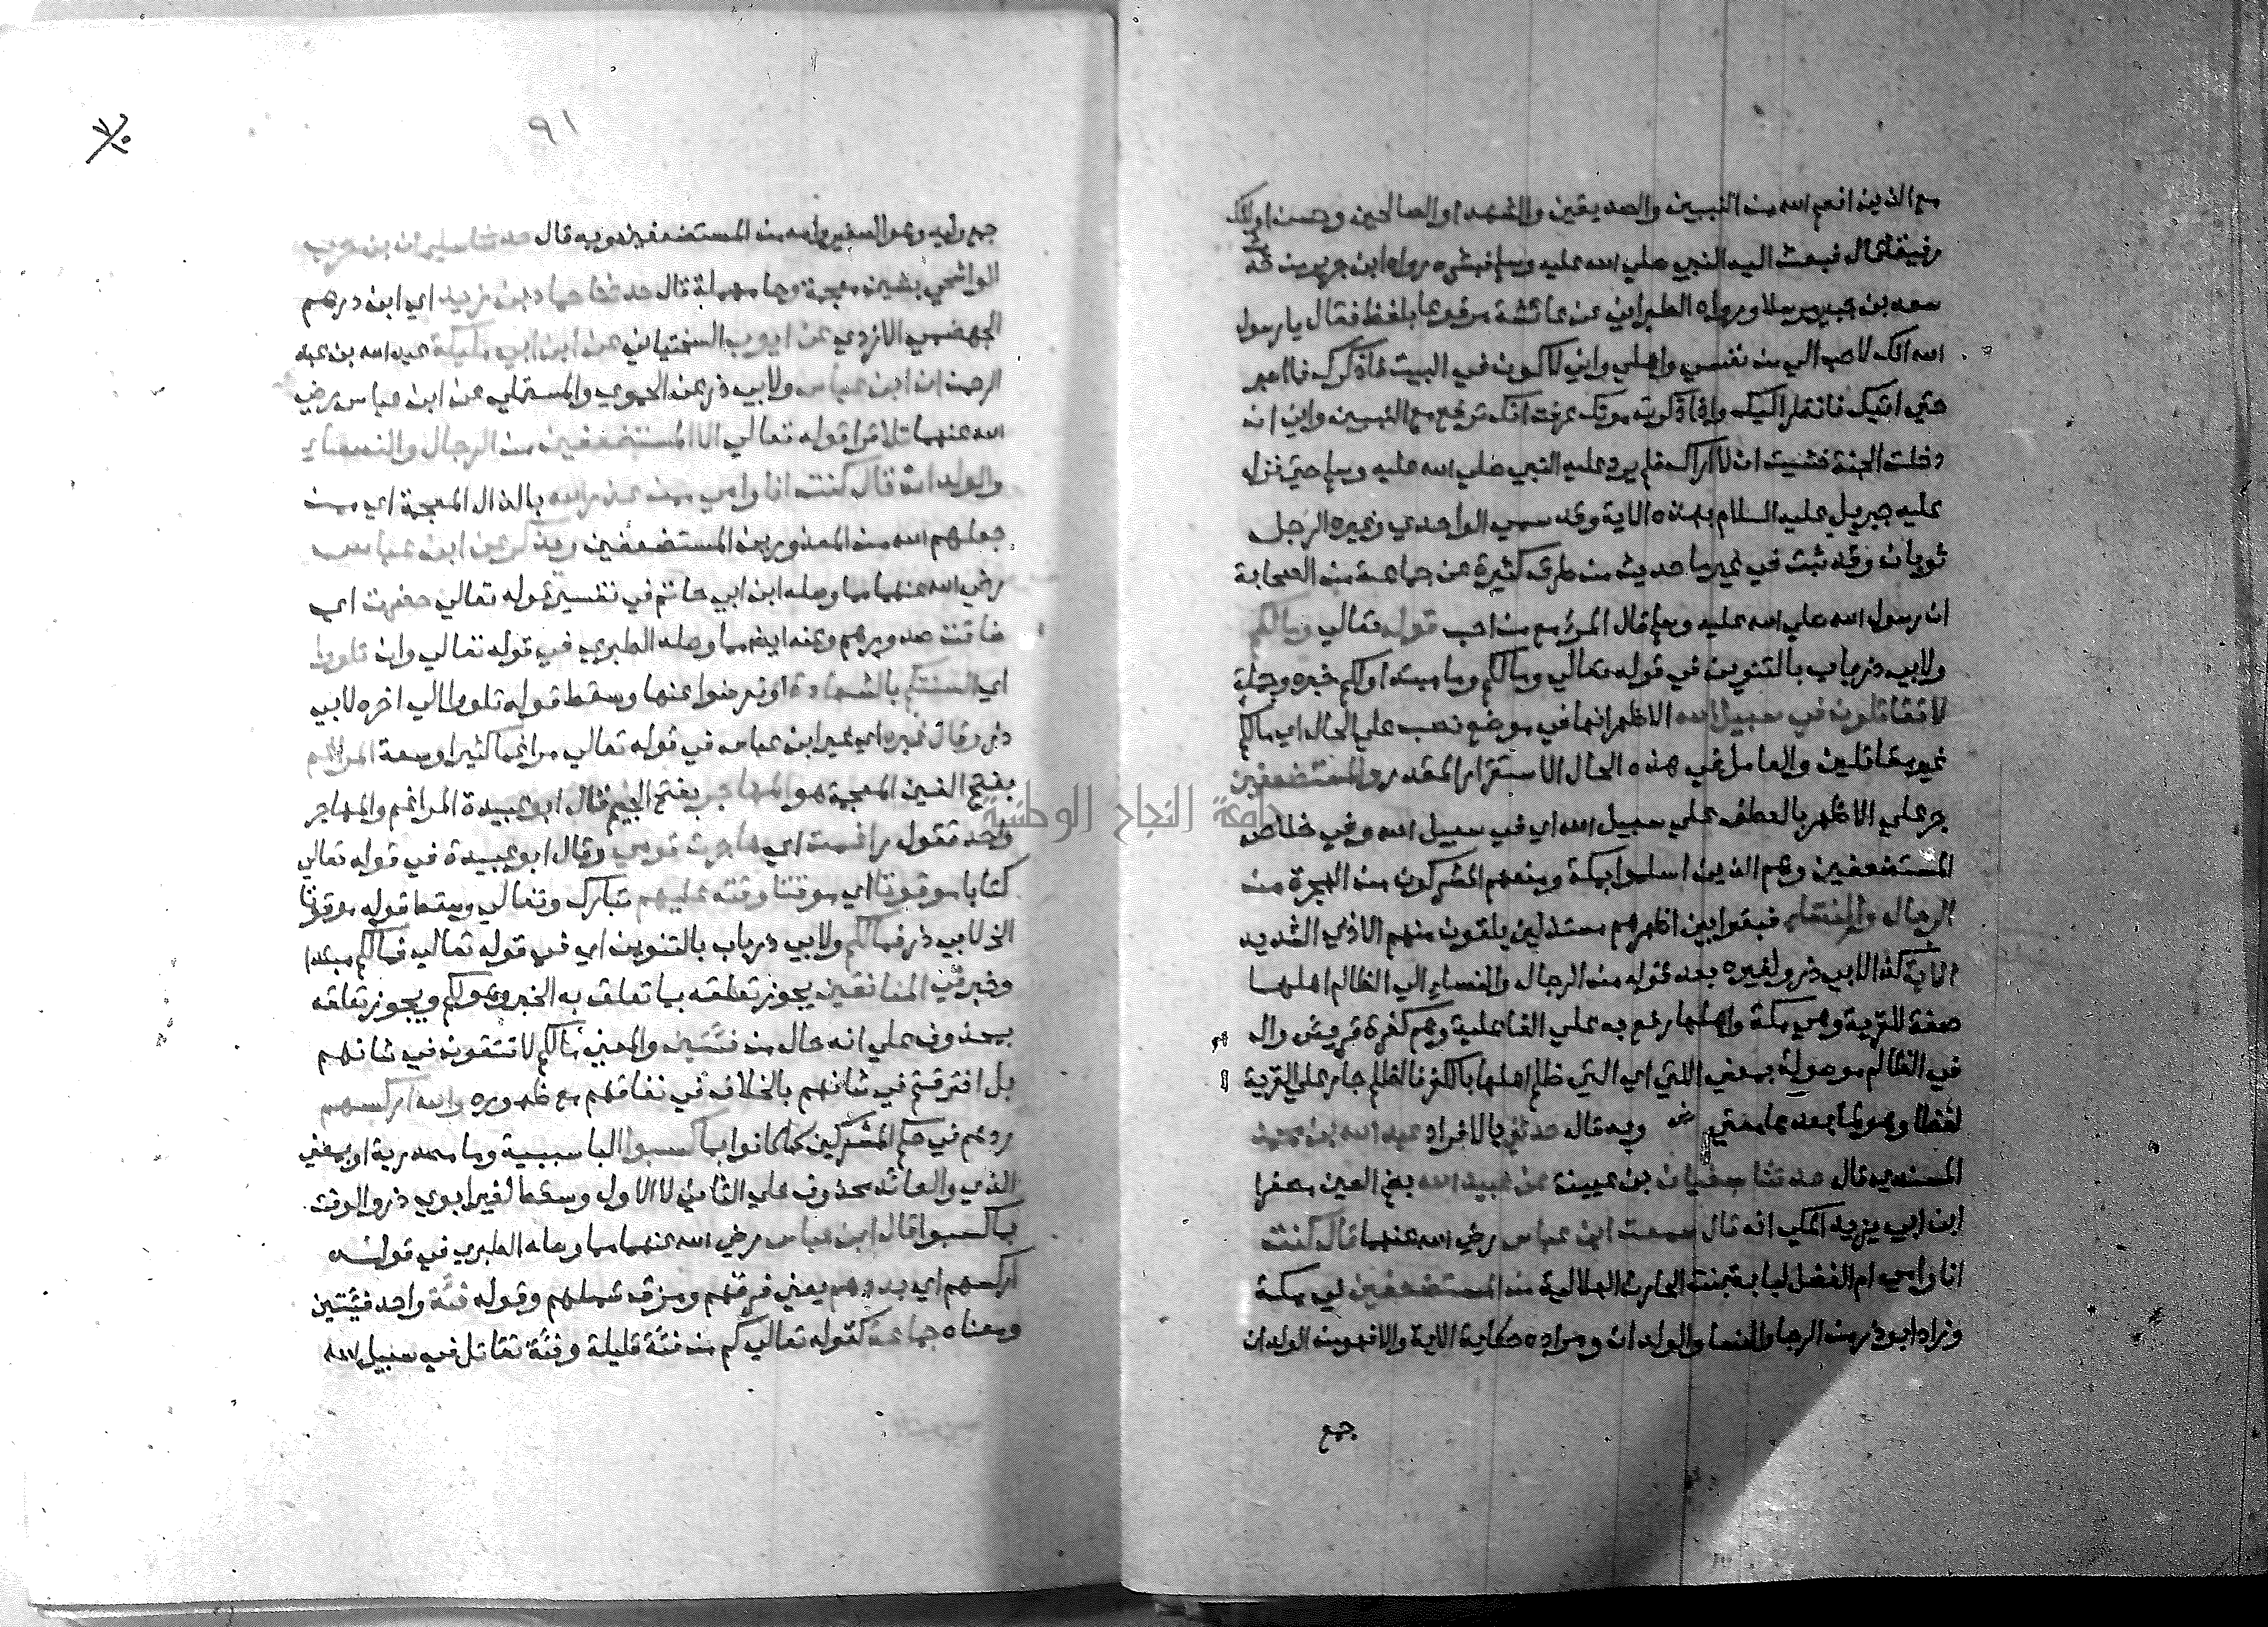 مع الذين انعم الله من النبيين والصديقين والشهداء والصالحين وحسن اوليك
رفيقا قال فبعث اليه النبي صلي الله عليه وسلم فبشره رواه ابن جرير من
سعيد بن جبير مرسلا ورواه الطبراني عن عائشة مرفوعا بلفظ فقال يا رسول
الله انك لاحب الي من نفسي واهلي واني لاكون في البيت فاذكرك فما اصبر
حتي اتيك فانظر اليك واذا ذكرت موتك عرفت انك ترفع مع النبيين واني ان
دخلت الجنة خشيت ان لا اراك فلم يرد عليه النبي صلي الله عليه وسلم حتي نزل
عليه جبريل عليه السلام بهذه الاية وقد سمي الواحدي وغيره الرجل
ثوبان وقد ثبت في غير ما حديث من طرق كثيرة عن جماعة من الصحابة
ان رسول الله صلي الله عليه وسلم قال المرء مع من احب قوله تعالي ومالكم
ولابي ذر باب بالتنوين في قوله تعالي ومالكم وما مبتدا ولكم خبره وجملة
لا تقاتلون في سبيل الله الاظهر انها في موضع نصب علي الحال اي مالكم
غير مقاتلين والعامل في هذه الحال الاستقرار المقدر والمستضعفين
جر علي الاظهر بالعطف علي سبيل الله اي في سبيل الله وفي خلاص
المستضعفين وهم الذين اسلموا بمكة ومنعهم المشركون من الهجرة من
الرجال والنساء فبقوا بين اظهرهم مستذلين يلقون منهم الاذي الشديد
الاية كذا لابي ذر ولغيره بعد قوله من الرجال والنساء الي الظالم اهلها
صفة للقرية وهي مكة واهلها رفع به علي الفاعلية وهم كفرة قريش وال
في الظالم موصولة بمعني التي اي التي ظلم اهلها بالكفر فالظلم جار علي القرية
لفظا وهو لما بعدها معني وبه قال حدثني بالافراد عبد الله بن محمد
المسندي قال حدثنا سفيان بن عيينة عن عبيد الله بضم العين مصغرا
ابن ابي يزيد المكي انه قال سمعت ابن عباس رضي الله عنهما قال كنت
انا وامي ام الفضل لبابة بنت الحارث الهلالية من المستضعفين في مكة
وزاد ابو ذر من الرجال والنساء والولدان ومراده حكاية الاية والا فهو من الولدان
جمع
٩١
جمع وليد وهو الصغير وامه من المستضعفين وبه قال حدثنا سليمان بن حرب
الواشحي بشين معجمة وحا مهملة قال حدثنا حماد بن زيد اي ابن درهم
الجهضمي الازدي عن ايوب السختياني عن ابن ابي مليكة عبد الله بن عبد
الرحمن ان ابن عباس ولابي ذر عن الحموي والمستملي عن ابن عباس رضي
الله عنهما تلا قرا قوله تعالي الا المستضعفين من الرجال والنساء
والولدان قال كنت انا وامي ممن عذر الله بالذال المعجمة اي ممن
جعلهم الله من المعذورين المستضعفين ويذكر عن ابن عباس
رضي الله عنهما مما وصله ابن ابي حاتم في تفسير قوله تعالي حصرت اي
ضاقت صدورهم وعنه ايضا مما وصله الطبري في قوله تعالي وان تلووا
اي السنتكم بالشهادة او تعرضوا عنها وسقط قوله تلووا الي اخره لابي
ذر وقال غيره اي غير ابن عباس في قوله تعالي مراغما كثيرا وسعة المراغم
بفتح الغين المعجمة هو المهاجر بفتح الجيم قال ابو عبيدة المراغم والمهاجر
واحد تقول راغمت اي هاجرت قومي وقال ابو عبيدة في قوله تعالي
كتابا موقوتا اي موقتا وقته عليهم تبارك وتعالي وسقط قوله موقوتا
الخ لابي ذر فمالكم ولابي ذر باب بالتنوين اي في قوله تعالي فمالكم مبتدا
وخبر في المنافقين يجوز تعلقه بما تعلق به الخبر وهو لكم ويجوز تعلقه
بمحذوف علي انه حال من فئتين والمعني مالكم لا تتفقون في شانهم
بل افترقتم في شانهم بالخلاف في نفاقهم مع ظهوره والله اركسهم
ردهم في حكم المشركين كما كانوا بما كسبوا البا سببية وما مصدرية او بمعني
الذي والعائد محذوف علي الثاني لا الاول وسقط لغير ابوي ذر والوقت
بما كسبوا قال ابن عباس رضي الله عنهما مما وصله الطبري في قوله
اركسهم اي بددهم يعني فرقهم ومزق شملهم وقوله فئة واحد فئتين
ومعناه جماعة كقوله تعالي كم من فئة قليلة وفئة تقاتل في سبيل الله
جامعة النجاح الوطنية